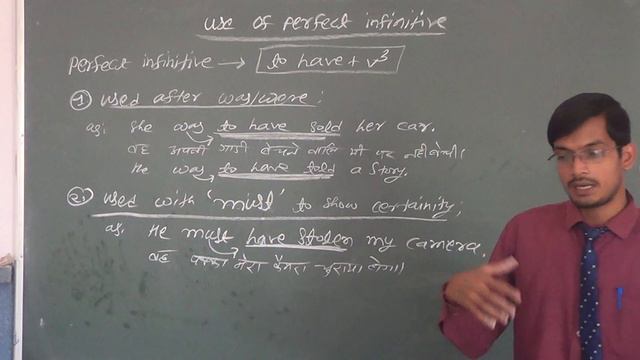 use of perfect infinitive
perfect infinitive → to have + v³
① used after was/were:
as; she was to have sold her car.
वह अपनी गाड़ी बेचने वाली थी पर नहीं बेची।
He was to have told a story.
② used with 'must' to show certainity;
as; He must have stolen my camera.
वह पक्का मेरा कैमरा चुराया होगा।